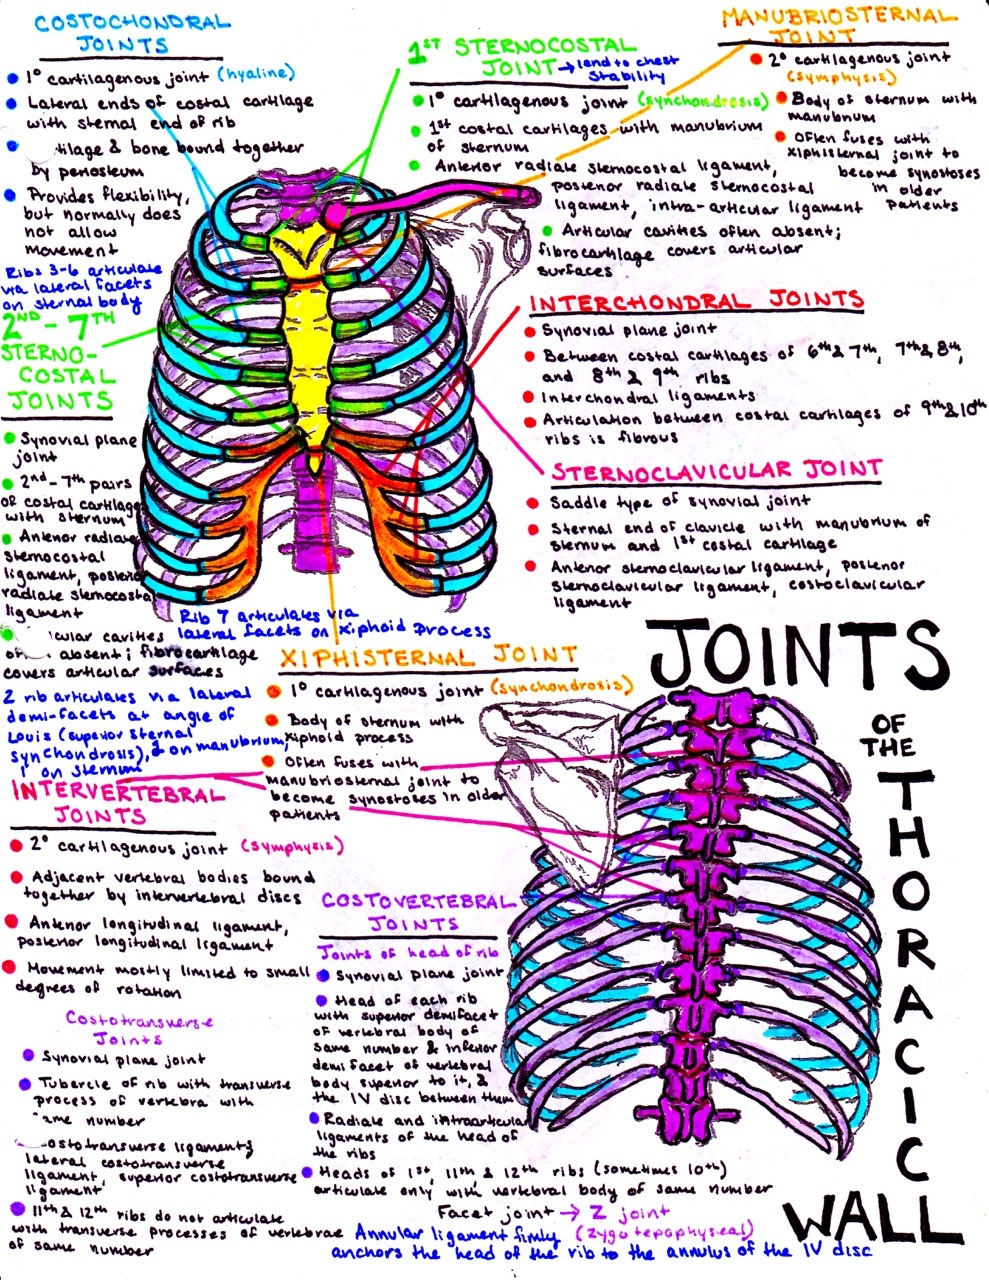 COSTOCHONDRAL
JOINTS
1° cartilagenous joint (hyaline)
Lateral ends of costal cartilage
with sternal end of rib
tilage & bone bound together
by periosteum
Provides flexibility,
but normally does
not allow
movement
Ribs 3-6 articulate
via lateral facets
on sternal body
2ND - 7TH
STERNO-
COSTAL
JOINTS
Synovial plane
joint
2nd - 7th pairs
of costal cartilage
with sternum
Anterior radiate
sternocostal
ligament, posterior
radiate sternocostal
ligament
icular cavities
absent; fibrocartilage
covers articular surfaces
2 rib articulates via lateral
demi-facets at angle of
Louis (superior sternal
synchondrosis), 2 on manubrium,
1 on sternum
1ST STERNOCOSTAL
JOINT → lend to chest
stability
1° cartilagenous joint (synchondrosis)
1st costal cartilages with manubrium
of sternum
Anterior radiate sternocostal ligament,
posterior radiate sternocostal
ligament, intra-articular ligament
Articular cavities often absent;
fibrocartilage covers articular
surfaces
MANUBRIOSTERNAL
JOINT
2° cartilagenous joint
(symphysis)
Body of sternum with
manubrium
Often fuses with
xiphisternal joint to
become synostoses
in older
patients
INTERCHONDRAL JOINTS
Synovial plane joint
Between costal cartilages of 6th & 7th, 7th & 8th,
and 8th & 9th ribs
Interchondral ligaments
Articulation between costal cartilages of 9th & 10th
ribs is fibrous
STERNOCLAVICULAR JOINT
Saddle type of synovial joint
Sternal end of clavicle with manubrium of
sternum and 1st costal cartilage
Anterior sternoclavicular ligament, posterior
sternoclavicular ligament, costoclavicular
ligament
Rib 7 articulates via
lateral facets on xiphoid process
XIPHISTERNAL JOINT
1° cartilagenous joint (synchondrosis)
Body of sternum with
xiphoid process
Often fuses with
manubriosternal joint to
become synostoses in older
patients
JOINTS
OF
THE
THORACIC
WALL
INTERVERTEBRAL
JOINTS
2° cartilagenous joint (symphysis)
Adjacent vertebral bodies bound
together by intervertebral discs
Anterior longitudinal ligament,
posterior longitudinal ligament
Movement mostly limited to small
degrees of rotation
Costotransverse
Joints
Synovial plane joint
Tubercle of rib with transverse
process of vertebra with
ame number
ostotransverse ligament;
lateral costotransverse
ligament, superior costotransverse
ligament
11th & 12th ribs do not articulate
with transverse processes of vertebrae
of same number
COSTOVERTEBRAL
JOINTS
Joints of head of rib
Synovial plane joint
Head of each rib
with superior demifacet
of vertebral body of
same number & inferior
demi facet of vertebral
body superior to it, &
the IV disc between them
Radiate and intraarticular
ligaments of the head of
the ribs
Heads of 1st, 11th, & 12th ribs (sometimes 10th)
articulate only with vertebral body of same number
Facet joint → Z joint
(zygotepophyseal)
Annular ligament firmly
anchors the head of the rib to the annulus of the IV disc